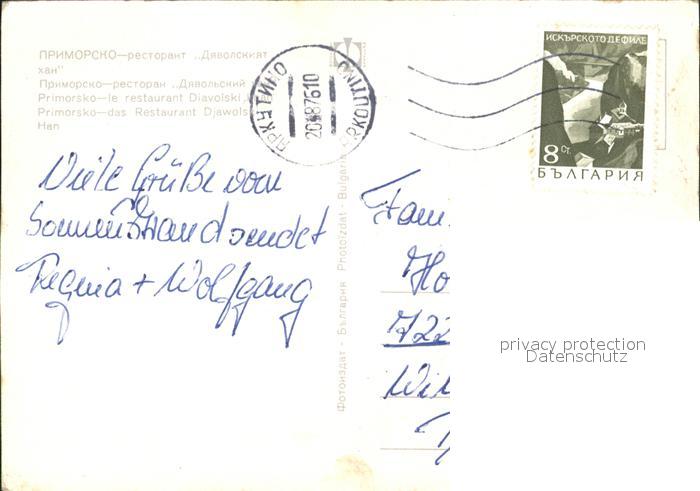 ПРИМОРСКО—ресторант „Дяволският
хан"
Приморско—ресторан „Дявольский
Primorsko—le restaurant Diavolski
Primorsko—das Restaurant Djawols
Han
АРКУТИНО
ARKOUTINO
ИСКЪРСКОТО ДЕФИЛЕ
8 Ст.
БЪЛГАРИЯ
Viele Grüße vom
Sonnenstrand sendet
Regina + Wolfgang
Фотоиздат - България Photoizdat - Bulgaria
Fam.
Ho
722
privacy protection
Datenschutz